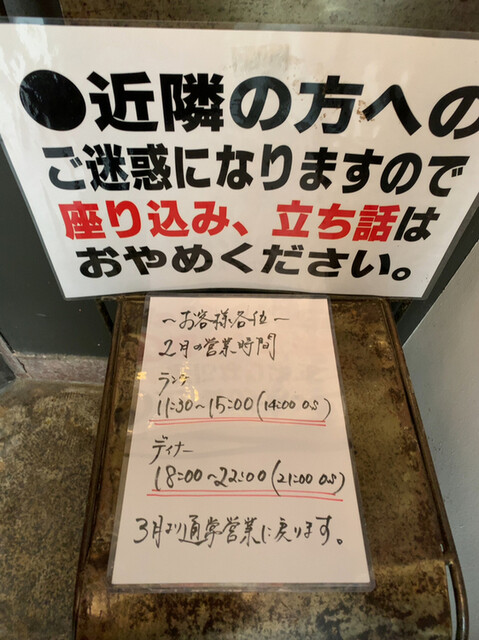 ●近隣の方への
ご迷惑になりますので
座り込み、立ち話は
おやめください。
〜お客様各位〜
2月の営業時間
ランチ
11:30〜15:00(14:00 OS)
ディナー
18:00〜22:00(21:00 OS)
3月より通常営業に戻ります。